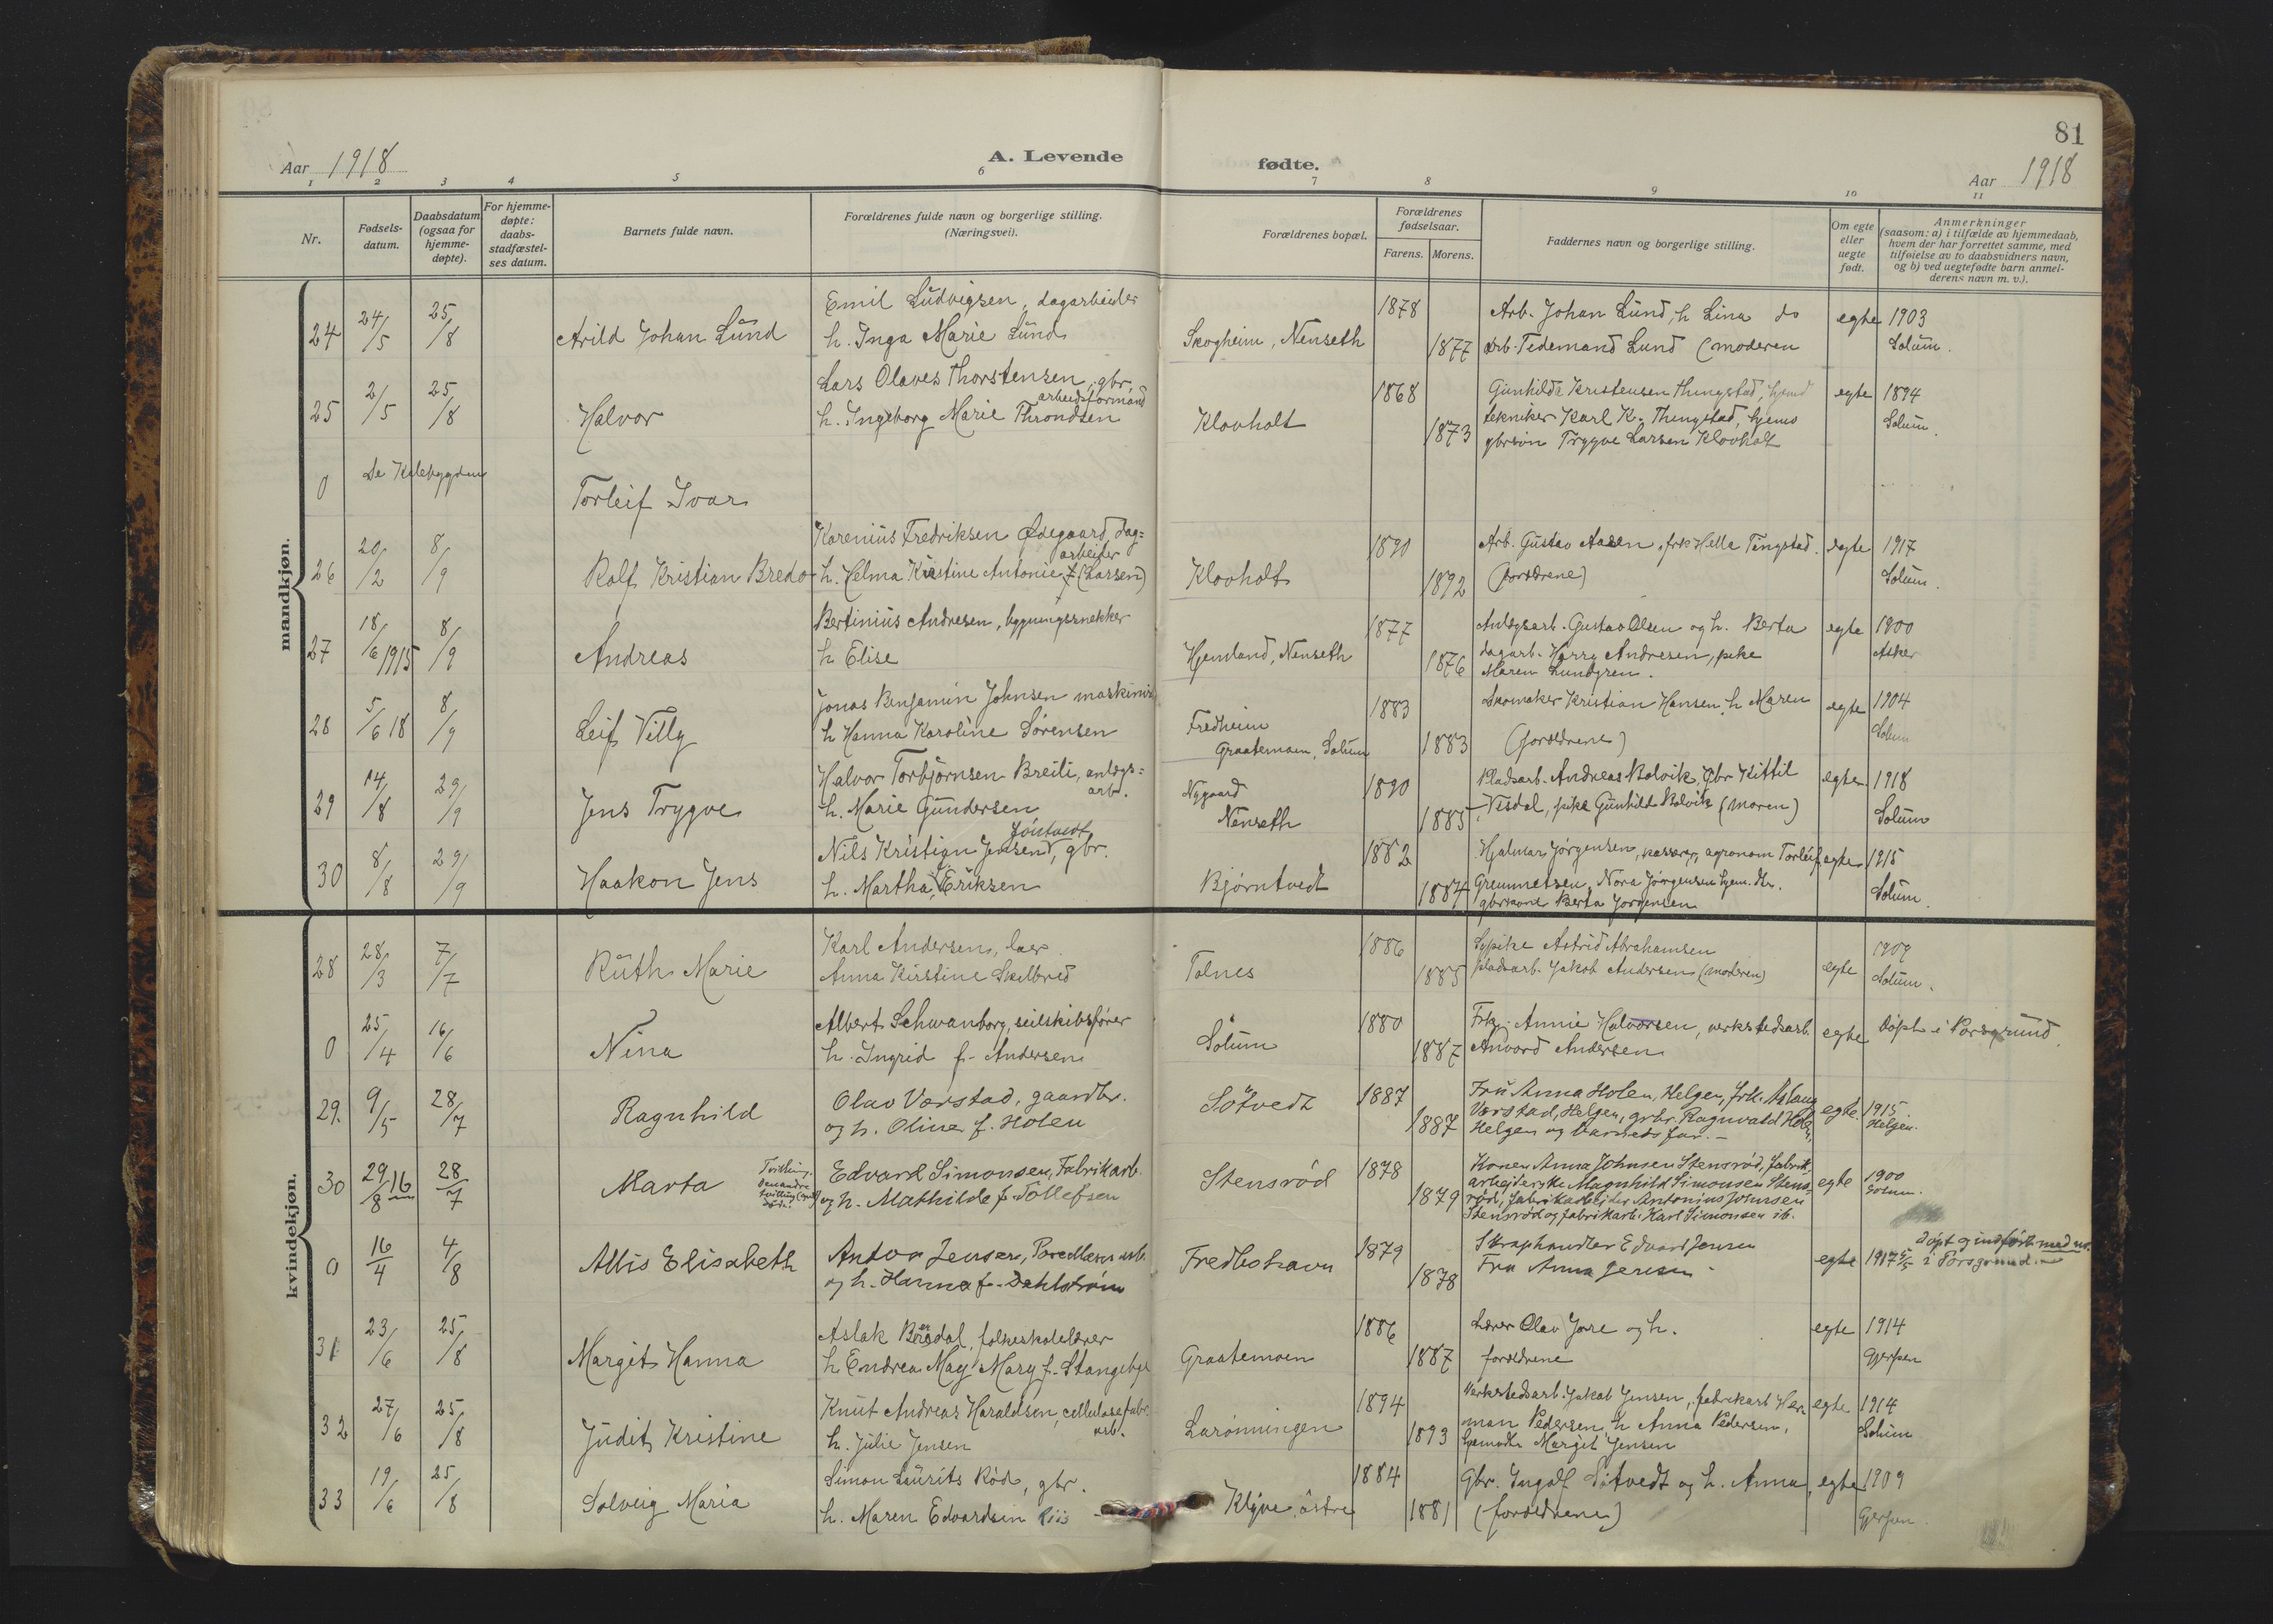 81
Aar 1918
A. Levende
fødte.
Aar 1918
1 2 3 4 5 6 7 8 9 10 11
Nr.
Fødsels-
datum.
Daabsdatum
(ogsaa for
hjemme-
døpte).
For hjemme-
døpte:
daabs-
stadfæstel-
ses datum.
Barnets fulde navn.
Forældrenes fulde navn og borgerlige stilling.
(Næringsvei).
Forældrenes bopæl.
Forældrenes
fødselsaar.
Farens. Morens.
Faddernes navn og borgerlige stilling.
Om egte
eller
uegte
født.
Anmerkninger
(saasom: a) i tilfælde av hjemmedaab,
hvem der har forrettet samme, med
tilføielse av to daabsvidners navn,
og b) ved uegtefødte barn anmel-
derens navn m. v.).
mandkjøn.
24 24/5 25/8 Arild Johan Lund
Emil Ludvigsen, dagarbeider
h. Inga Marie Lund
Skogheim, Nenseth
1878 1877
Arb. Johan Lund, h Lina do
arb. Tedemand Lund (moderen
egte 1903
Solum.
25 2/5 25/8 Halvor
Lars Olaves Thorstensen, gbr,
arbeidsformand
h. Ingeborg Marie Throndsen
Klovholt
1868 1873
Gunhilda Kristensen Thengstad, hjem
tekniker Karl K. Thengstad, hjems
gbrsøn Trygve Larsen Klovholt
egte 1894
Solum.
0 Se Kilebygden Torleif Ivar
26 20/2 8/9 Rolf Kristian Bredo
Karenius Fredriksen Ødegaard, dag=
arbeider
h. Helma Kristine Antonie f (Larsen)
Klovholt
1890 1892
Arb. Gustav Aasen, frk Helle Tingstad.
(forældrene)
egte 1917
Solum.
27 18/6 1915 8/9 Andreas
Bertinius Andresen, bygningssnekker
h Elise
Hjemland, Nenseth
1877 1876
Anlegsarb. Gustav Olsen og h. Berta
dagarb. Harry Andresen, pike
Maren Lundgren.
egte 1900
Asker
28 5/6 18 8/9 Leif Villy
Jonas Benjamin Johnsen maskinist
h Hanna Karoline Sørensen
Fredheim
Graatemoen, Solum
1883 1883
Skomaker Kristian Hansen, h Maren
(forældrene)
egte 1904
Solum
29 14/8 29/9 Jens Trygve
Halvor Torbjørnsen Breili, anlegs=
arb.
h. Marie Gundersen
Nygaard
Nenseth
1890 1885
Pladsarb. Andreas Bolvik, Gbr Kittil
Visdal, pike Gunhild Bolvik (moren)
egte 1918
Solum
30 8/8 29/9 Haakon Jens
Nils Kristian Jensen, gbr.
h. Martha Eriksen
Bjørntvedt
1882 1887
Hjalmar Jørgensen, agronom Torleif
Gremmetsen, Nora Jørgensen hjem. dtr.
gbrkone Berta Jørgensen
egte 1915
Solum.
kvindekjøn.
28 28/3 7/7 Ruth Marie
Karl Andersen, lær
Anna Kirstine Skilbred
Tolnes
1886 1885
Sypike Astrid Abrahamsen
pladsarb. Jakob Andersen (moderen)
egte 1909
Solum.
0 25/4 16/6 Nina
Albert Schwanborg, seilskibsfører
h. Ingrid f. Andersen
Solum
1880 1887
Frk. Annie Halvorsen, verkstedsarb.
Anvord Andersen
egte døpt i Porsgrund.
29. 9/5 28/7 Ragnhild
Olav Værstad, gaardbr.
og h. Oline f. Holen
Søtvedt
1887 1887
Fru Anna Holen, Helgen, frk. Aslaug
Værstad, Helgen, grbr. Ragnvald Holen,
Helgen og barnets far. -
egte. 1915
Helgen.
30 29/8 16 28/7 Marta
Tvilling.
Den andre
tvilling
Edvard Simonsen, Fabrikarb.
og h. Mathilde f. Tollefsen
Stensrød
1878 1879
Konen Anna Johnsen Stensrød, fabrik-
arbejderske Magnhild Simonsen Stens-
rød, fabrikarbejder Antonius Johnsen
Stensrød og fabrikarb. Karl Simonsen ib.
egte 1900
Solum.
0 16/4 4/8 Allis Elisabeth
Anton Jensen, arb.
og h. Hanna f. Dahlstrøm
Fredleshavn
1879 1878
Skraphandler Edvard Jensen
Fru Anna Jensen
egte 1917
døpt og indført med nr.
i Porsgrund.
31 23/6 25/8 Margit Hanna
Aslak Brødal, folkeskolelærer
h Endrea May Mary f. Stangebye
Graatemoen
1886 1887
Lærer Olav Jore og h.
forældrene
egte 1914
Gjerpen
32 27/6 25/8 Judit Kristine
Knut Andreas Haraldsen, cellulosefabr.
arb.
h. Julie Jensen
Larønningen
1894 1893
Verkstedsarb. Jakob Jensen, fabrikarb Her-
man Pedersen, h Anna Pedersen,
Margit Jensen
egte 1914
Solum
33 19/6 25/8 Solveig Maria
Simon Laurits Rød, gbr.
h. Maren Edvardsen Riis
Klyve, østre
1884 1881
Gbr. Ingolf Søtvedt og h. Anna,
(forældrene)
egte 1909
Gjerpen